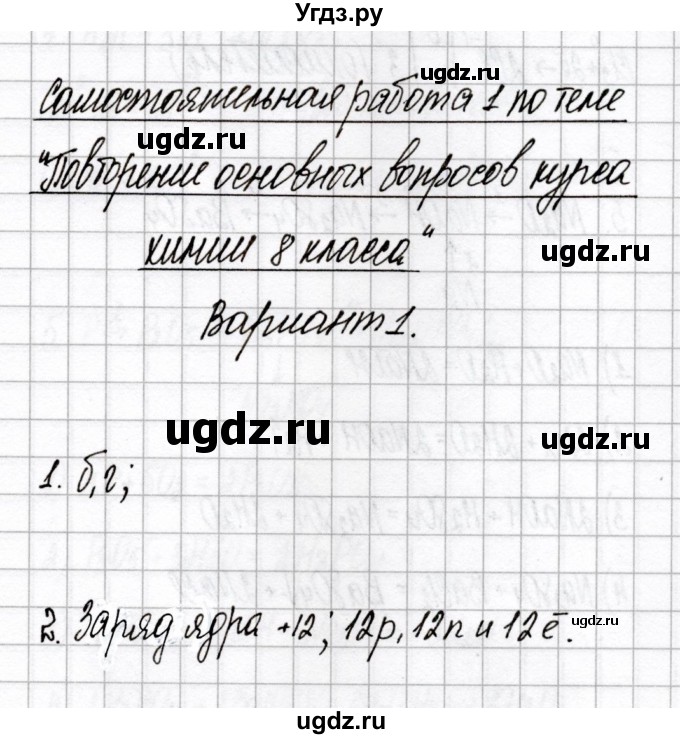 Угдз.ру
ugdz.ru
Самостоятельная работа 1 по теме
ugdz.ru
"Повторение основных вопросов курса
химии 8 класса"
ugdz.ru
Вариант 1.
ugdz.ru
1. б, г;
2. Заряд ядра +12; 12p, 12n и 12ē.
ugdz.ru
ugdz.ru